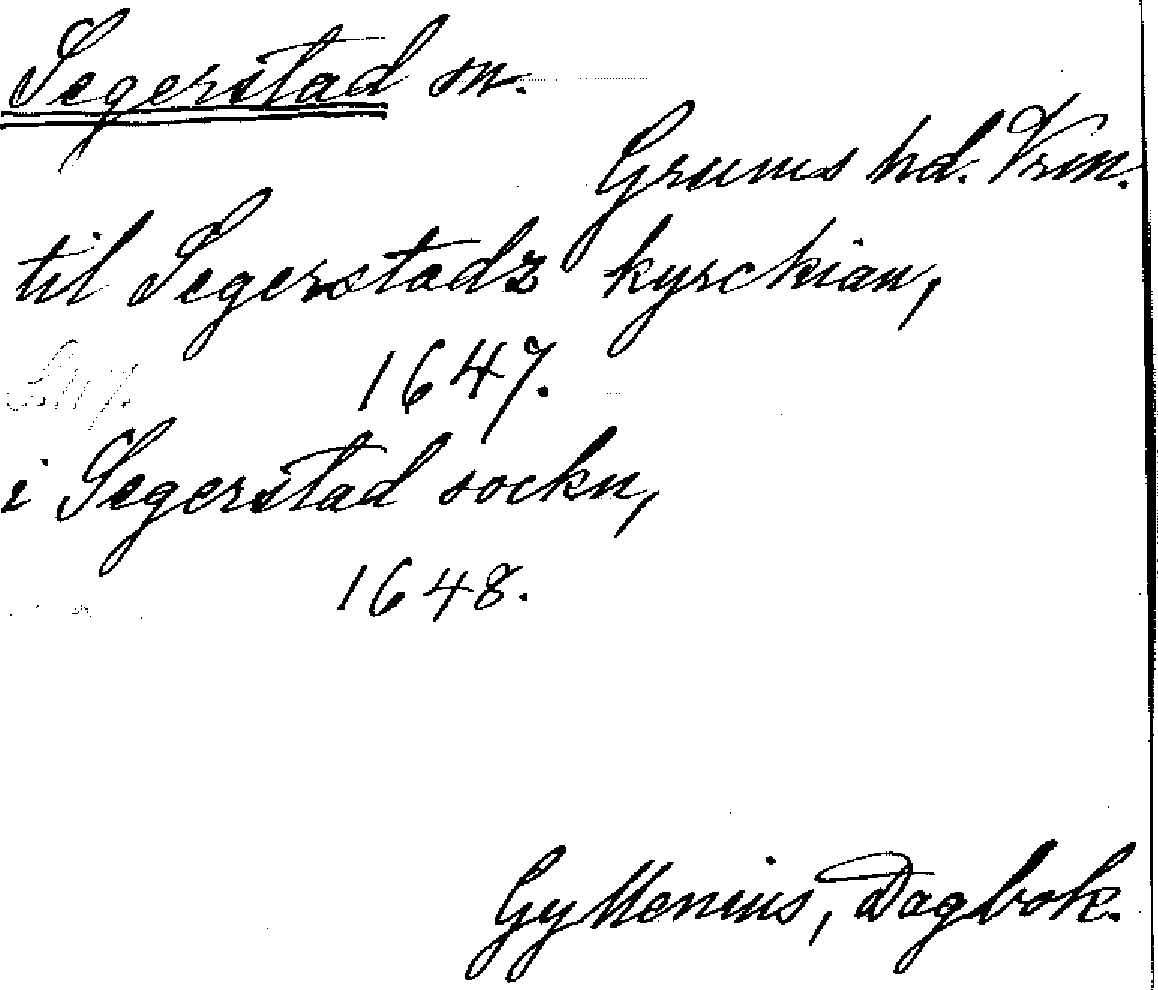 Segerstad sn.
Grums hd. Vrm.
til Segerstadz kyrckian,
1647.
i Segerstad sockn,
1648.
Gyllenius, Dagbok.